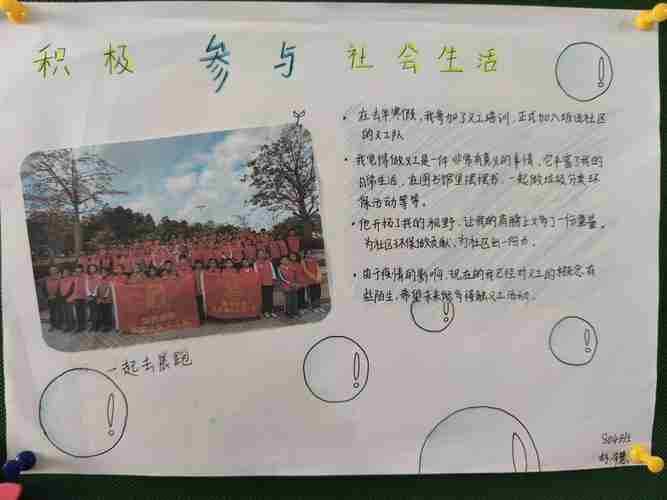 积极 参与 社会生活
· 在去年寒假,我参加了义工培训,正式加入班班社区
的义工队
· 我觉得做义工是一件非常有意义的事情,它丰富了我的
日常生活,在图书馆里摆摆书,一起做垃圾分类环
保活动等等。
· 他开拓了我的视野,让我的肩膀上又多了一份重量。
为社区环保做贡献,为社区出一份力。
· 由于疫情的影响,现在的我已经对义工的概念有
些陌生,希望未来能多接触义工活动。
一起去晨跑
804班